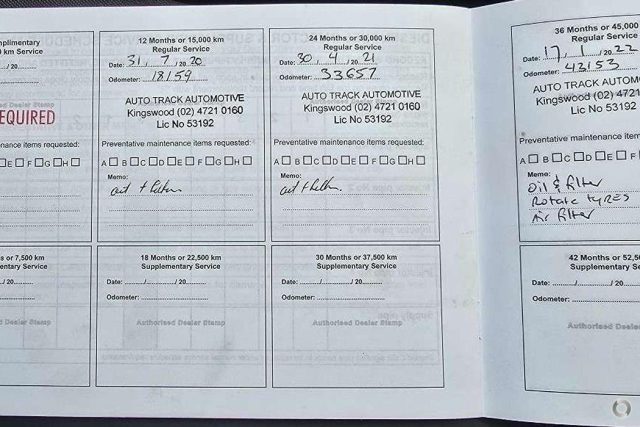 mplimentary
0 km Service
/ 20
EQUIRED
nance items requested:
E F G H
12 Months or 15,000 km
Regular Service
Date: 31 / 7 / 20 20
Odometer: 18159
AUTO TRACK AUTOMOTIVE
Kingswood (02) 4721 0160
Lic No 53192
Preventative maintenance items requested:
A B C D E F G H
Memo:
24 Months or 30,000 km
Regular Service
Date: 30 / 4 / 20 21
Odometer: 33657
AUTO TRACK AUTOMOTIVE
Kingswood (02) 4721 0160
Lic No 53192
Preventative maintenance items requested:
A B C D E F G H
Memo:
36 Months or 45,000
Regular Service
Date: 17 / 1 / 20 22
Odometer: 43153
AUTO TRACK AUTOM
Kingswood (02) 4721
Lic No 53192
Preventative maintenance items requ
A B C D E F
Memo:
Oil & filter
Rotate tyres
Air filter
s or 7,500 km
entary Service
/ 20
d Dealer Stamp
18 Months or 22,500 km
Supplementary Service
Date: / / 20
Odometer:
Authorised Dealer Stamp
30 Months or 37,500 km
Supplementary Service
Date: / / 20
Odometer:
Authorised Dealer Stamp
42 Months or 52,5
Supplementary Se
Date: / / 20
Odometer:
Authorised Deale